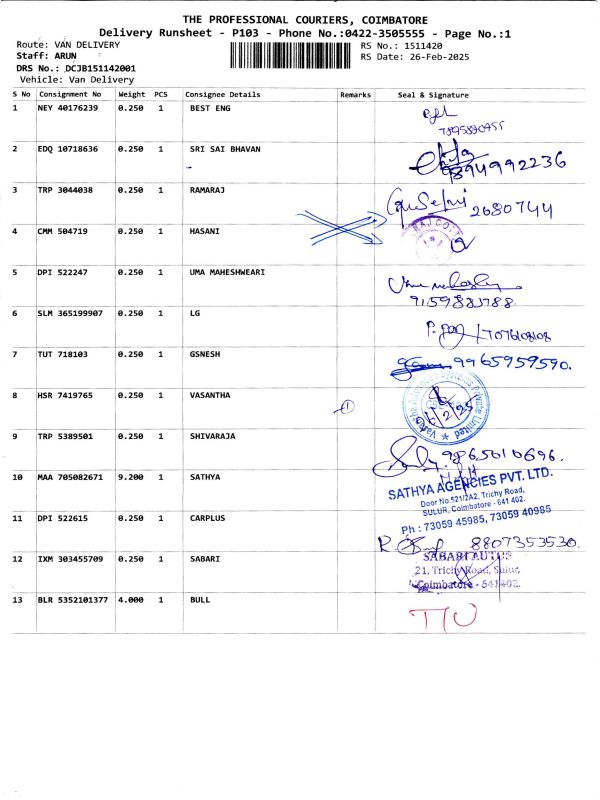 THE PROFESSIONAL COURIERS, COIMBATORE
Delivery Runsheet - P103 - Phone No.:0422-3505555 - Page No.:1
Route: VAN DELIVERY
RS No.: 1511420
Staff: ARUN
RS Date: 26-Feb-2025
DRS No.: DCJB151142001
Vehicle: Van Delivery
S No Consignment No Weight PCS Consignee Details Remarks Seal & Signature
1 NEY 40176239 0.250 1 BEST ENG
2 EDQ 10718636 0.250 1 SRI SAI BHAVAN
9894992236
3 TRP 3044038 0.250 1 RAMARAJ
2680744
4 CMM 504719 0.250 1 HASANI
5 DPI 522247 0.250 1 UMA MAHESHWEARI
6 SLM 365199907 0.250 1 LG
7 TUT 718103 0.250 1 GSNESH
9965959590.
8 HSR 7419765 0.250 1 VASANTHA
1
9 TRP 5389501 0.250 1 SHIVARAJA
9865010696.
10 MAA 705082671 9.200 1 SATHYA
SATHYA AGENCIES PVT. LTD.
Door No.521/2A2, Trichy Road,
SULUR, Coimbatore - 641 402.
Ph : 73059 45985, 73059 40985
11 DPI 522615 0.250 1 CARPLUS
8807353530.
12 IXM 303455709 0.250 1 SABARI
SABARI AUTOS
21, Trichy Road, Sulur,
Coimbatore - 641 402.
13 BLR 5352101377 4.000 1 BULL